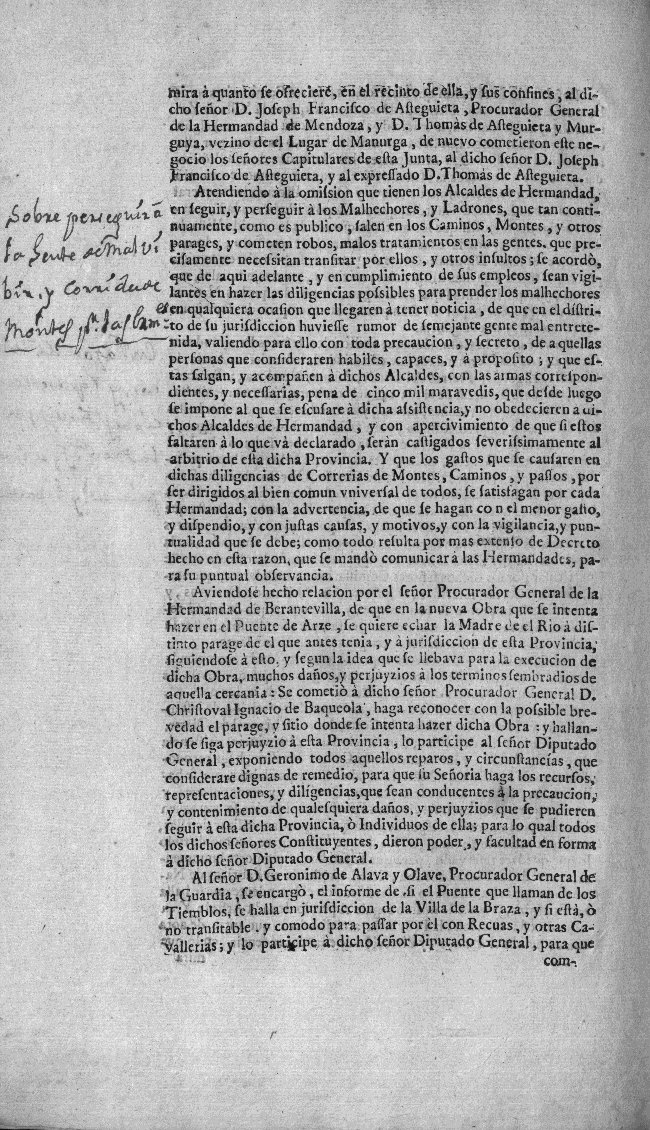 mira à quanto se ofreciere, en el recinto de ella, y sus confines, al di-
cho señor D. Joseph Francisco de Asteguieta, Procurador General
de la Hermandad de Mendoza, y D. Thomàs de Asteguieta y Mur-
guya, vezino de el Lugar de Manurga, de nuevo cometieron este ne-
gocio los señores Capitulares de esta Junta, al dicho señor D. Joseph
Francisco de Asteguieta, y al expressado D. Thomàs de Asteguieta.
Atendiendo à la omission que tienen los Alcaldes de Hermandad,
en seguir, y perseguir à los Malhechores, y Ladrones, que tan conti-
nuamente, como es publico, salen en los Caminos, Montes, y otros
parages, y cometen robos, malos tratamientos en las gentes, que pre-
cisamente necessitan transitar por ellos, y otros insultos; se acordò,
que de aqui adelante, y en cumplimiento de sus empleos, sean vigi-
lantes en hazer las diligencias possibles para prender los malhechores
en qualquiera ocasion que llegaren à tener noticia, de que en el distri-
to de su jurisdiccion huviesse rumor de semejante gente mal entrete-
nida, valiendo para ello con toda precaucion, y secreto, de aquellas
personas que consideraren habiles, capaces, y à proposito; y que es-
tas salgan, y acompañen à dichos Alcaldes, con las armas correspon-
dientes, y necessarias, pena de cinco mil maravedis, que desde luego
se impone al que se escusare à dicha assistencia, y no obedecieren à di-
chos Alcaldes de Hermandad, y con apercivimiento de que si estos
faltaren à lo que và declarado, seràn castigados severissimamente al
arbitrio de esta dicha Provincia. Y que los gastos que se causaren en
dichas diligencias de Correrias de Montes, Caminos, y passos, por
ser dirigidos al bien comun vniversal de todos, se satisfagan por cada
Hermandad; con la advertencia, de que se hagan con el menor gasto,
y dispendio, y con justas causas, y motivos, y con la vigilancia, y pun-
tualidad que se debe; como todo resulta por mas extenso de Decreto
hecho en esta razon, que se mandò comunicar à las Hermandades, pa-
ra su puntual observancia.
Aviendose hecho relacion por el señor Procurador General de la
Hermandad de Berantevilla, de que en la nueva Obra que se intenta
hazer en el Puente de Arze, se quiere echar la Madre de el Rio à dis-
tinto parage de el que antes tenia, y à jurisdiccion de esta Provincia,
siguiendose à esto, y segun la idea que se llebava para la execucion de
dicha Obra, muchos daños, y perjuyzios à los terminos sembradios de
aquella cercania: Se cometiò à dicho señor Procurador General D.
Christoval Ignacio de Baqueola, haga reconocer con la possible bre-
vedad el parage, y sitio donde se intenta hazer dicha Obra: y hallan-
do se siga perjuyzio à esta Provincia, lo participe al señor Diputado
General, exponiendo todos aquellos reparos, y circunstancias, que
considerare dignas de remedio, para que su Señoria haga los recursos,
representaciones, y diligencias, que sean conducentes à la precaucion,
y contenimiento de qualesquiera daños, y perjuyzios que se pudieren
seguir à esta dicha Provincia, ò Individuos de ella; para lo qual todos
los dichos señores Constituyentes, dieron poder, y facultad en forma
à dicho señor Diputado General.
Al señor D. Geronimo de Alava y Olave, Procurador General de
la Guardia, se encargò, el informe de si el Puente que llaman de los
Tiemblos, se halla en jurisdiccion de la Villa de la Braza, y si està, ò
no transitable, y comodo para passar por el con Recuas, y otras Ca-
vallerias; y lo participe à dicho señor Diputado General, para que
com-
Sobre perseguir à
la Gente de Mal vi
bir, y corrida de
Montes